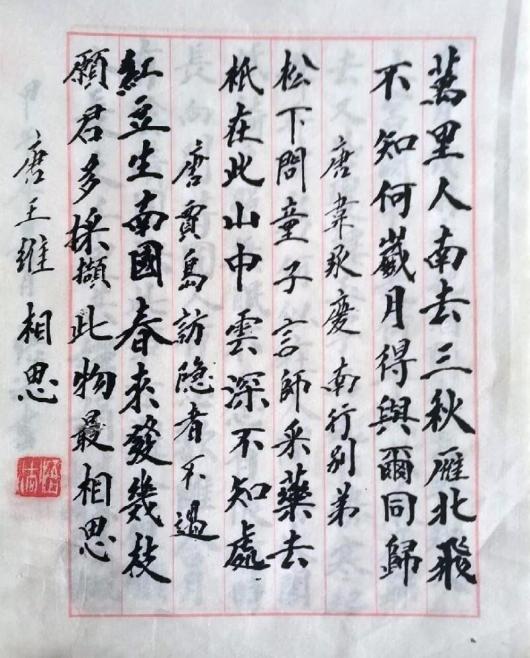 萬里人南去三秋雁北飛
不知何歲月得與爾同歸
唐韋承慶南行别弟
松下問童子言師采藥去
祇在此山中雲深不知處
唐賈島訪隐者不遇
紅豆生南國春来發幾枝
願君多採擷此物最相思
唐王維 相思